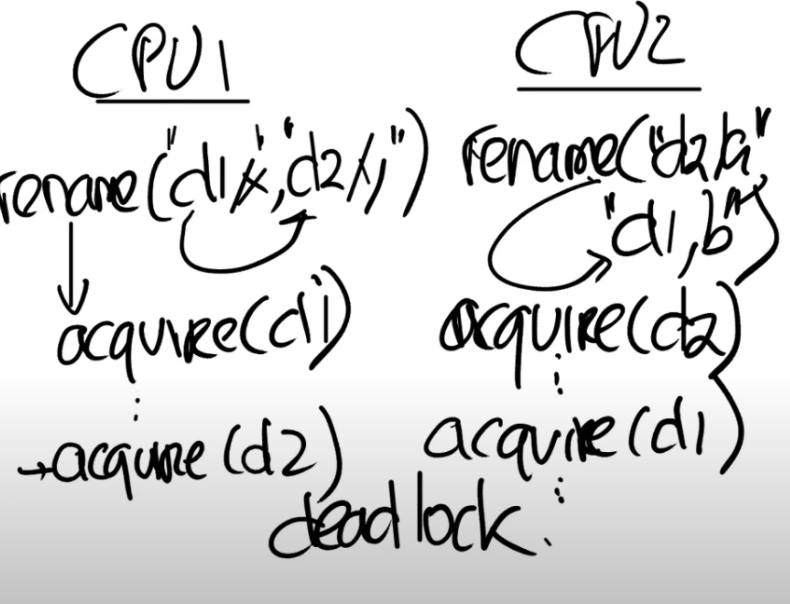 CPU1
rename("d1/x", "d2/y")
acquire(d1)
acquire(d2)
CPU2
rename("d2/a",
"d1,b")
acquire(d2)
acquire(d1)
deadlock.